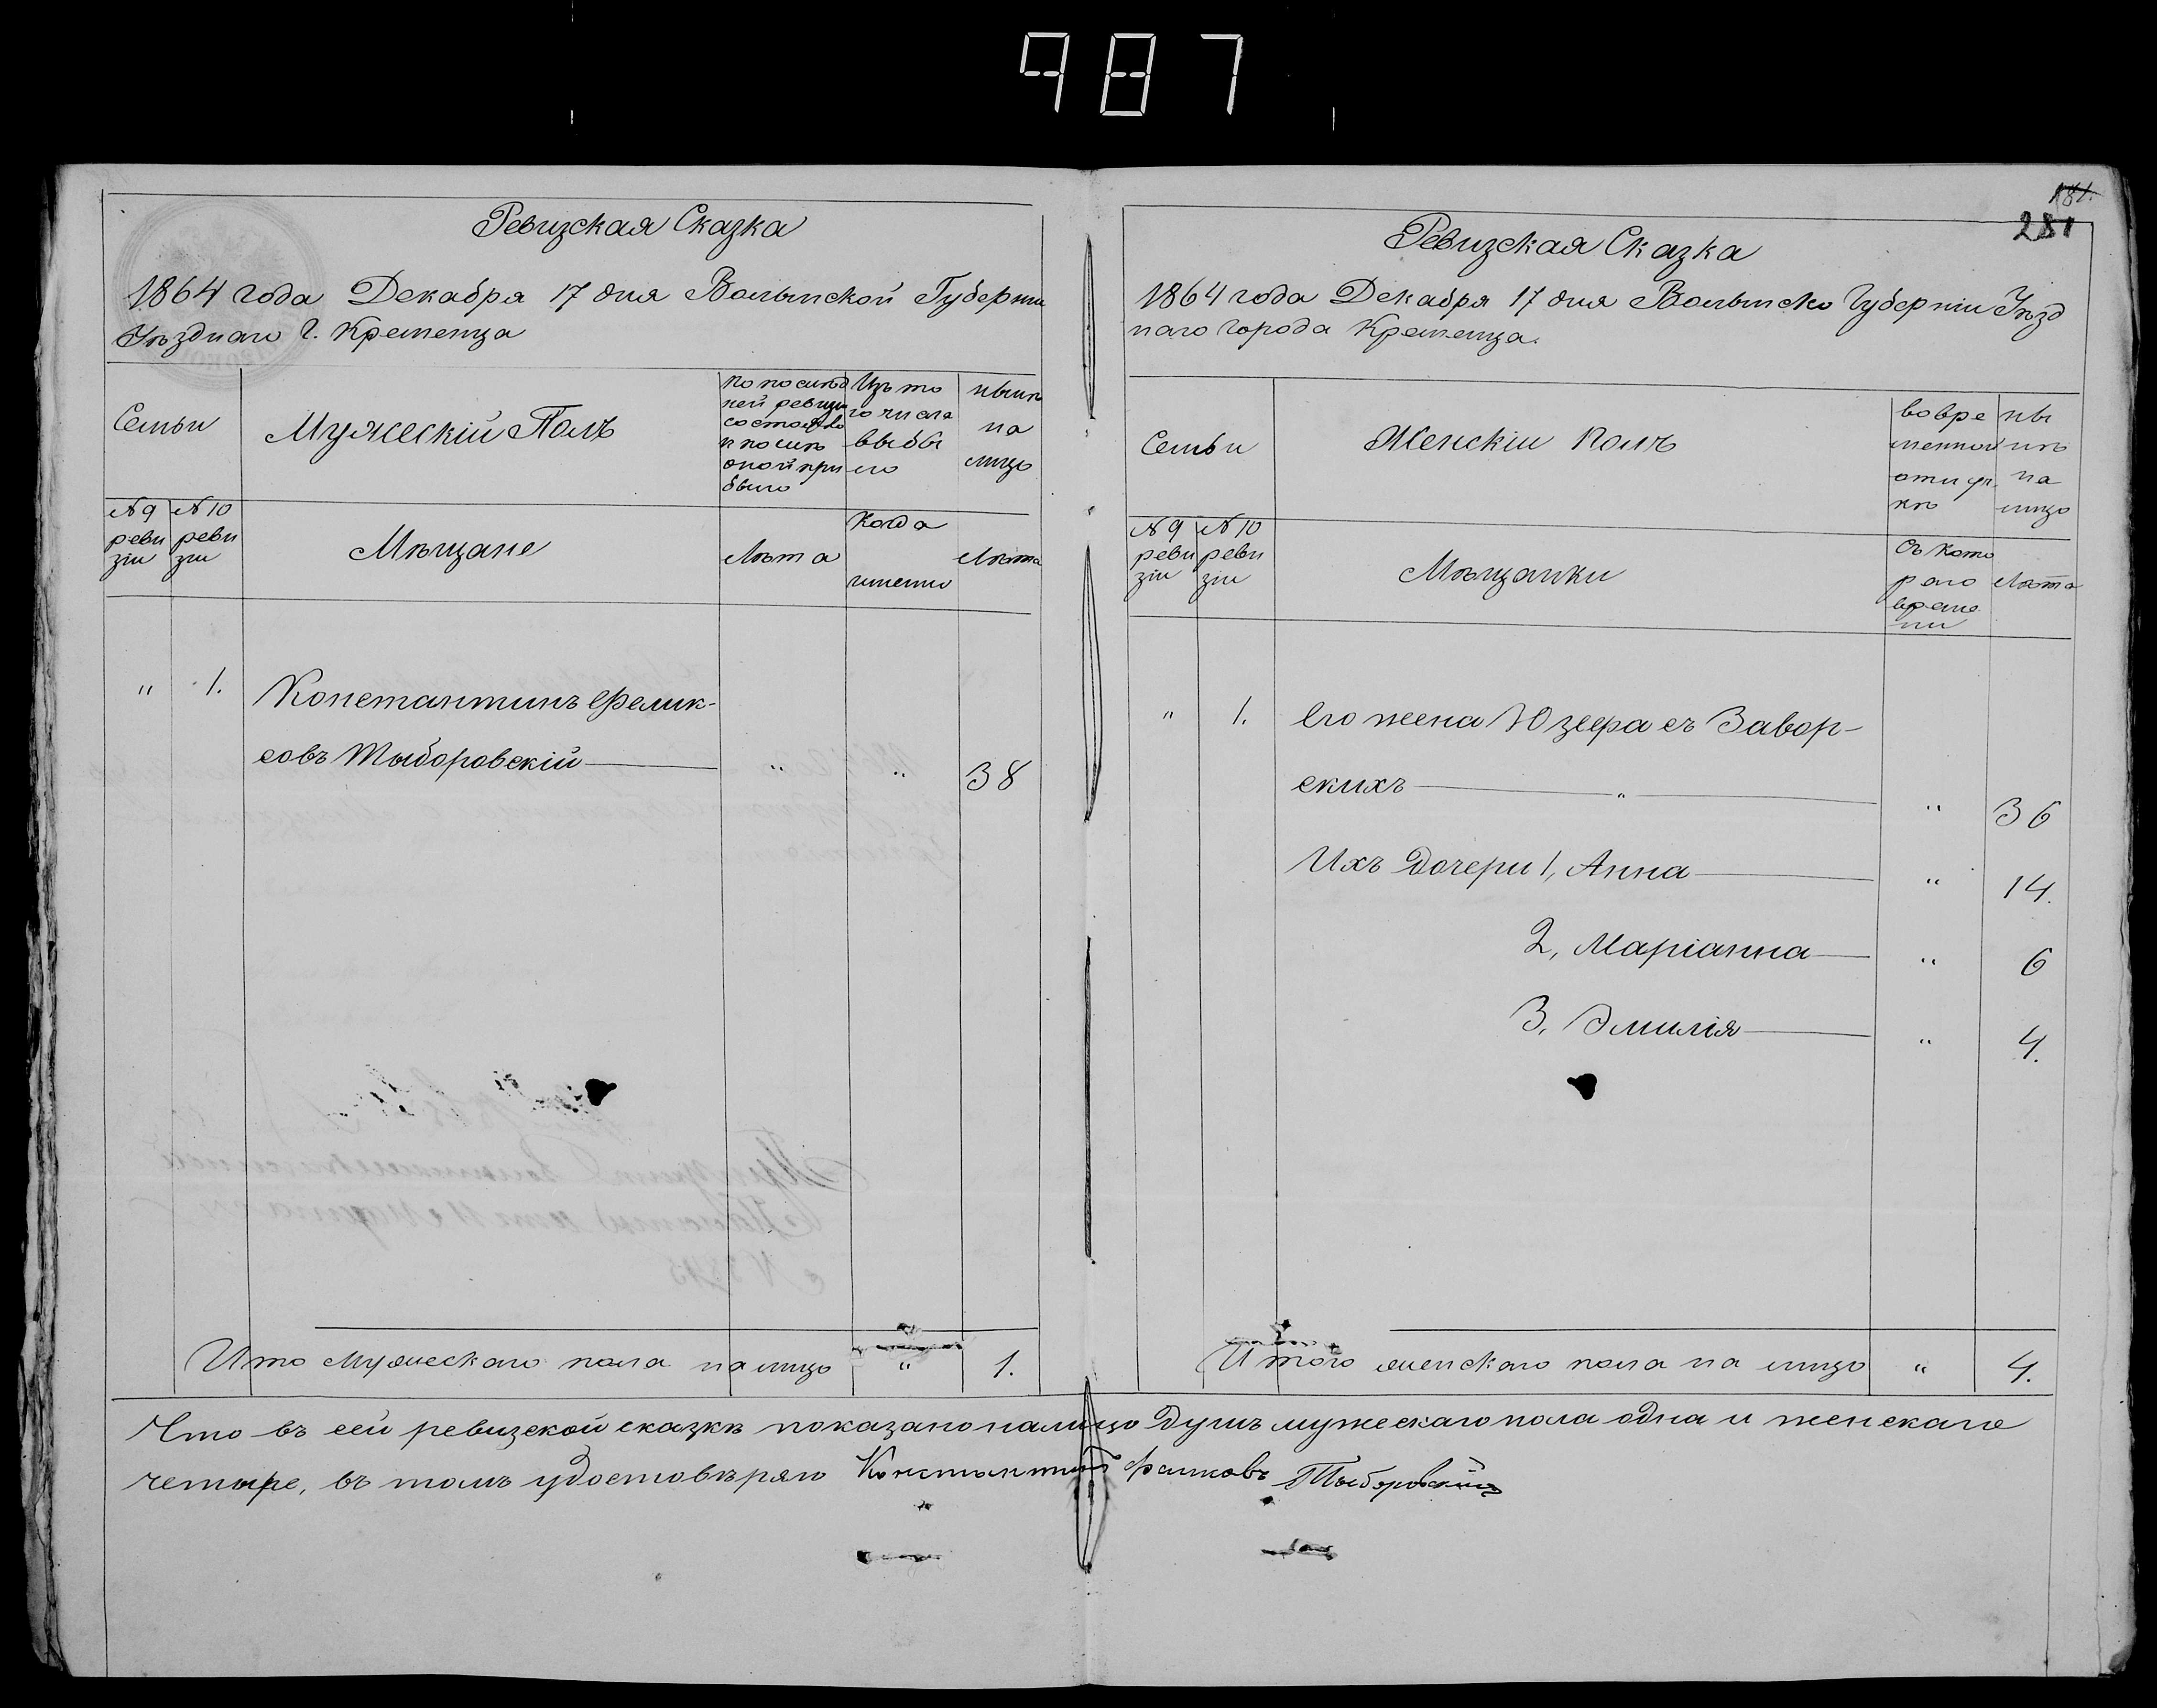 987
Ревизская Сказка
1864 года Декабря 17 дня Волынской Губерніи
Уѣзднаго Г. Кременца
Семьи
Мужескій Полъ
по послѣд
ней ревизіи
состояло
и послѣ
оной при
было
Изъ то
го числа
выбы
ло
нынѣ
на
лицо
№ 9
реви
зіи
№ 10
реви
зіи
Мѣщане
Лѣта
Когда
именно
Лѣта
" 1. Константинъ Феликс-
совъ Тыборовскій " " 38
Итого Мужескаго пола на лицо " 1.
181.
281
Ревизская Сказка
1864 года Декабря 17 дня Волынско Губерніи Уѣзд
наго города Кременца.
Семьи
Женскій полъ
во вре
менной
отлуч.
кѣ
ны
нѣ
на
лицо
№ 9
реви
зіи
№ 10
реви
зіи
Мѣщанки
Съ кото
раго
време
ни
Лѣта
" 1. Его жена Юзефа съ Завор-
скихъ " " 36
Ихъ Дочери 1, Анна " 14.
2, Маріанна " 6
3, Эмилія " 4.
Итого женскаго пола на лицо " 4.
Что въ сей ревизской сказкѣ показано на лицо Душъ мужескаго пола одна и женскаго
четыре, въ томъ удостовѣряю Константинъ Тыборовскій